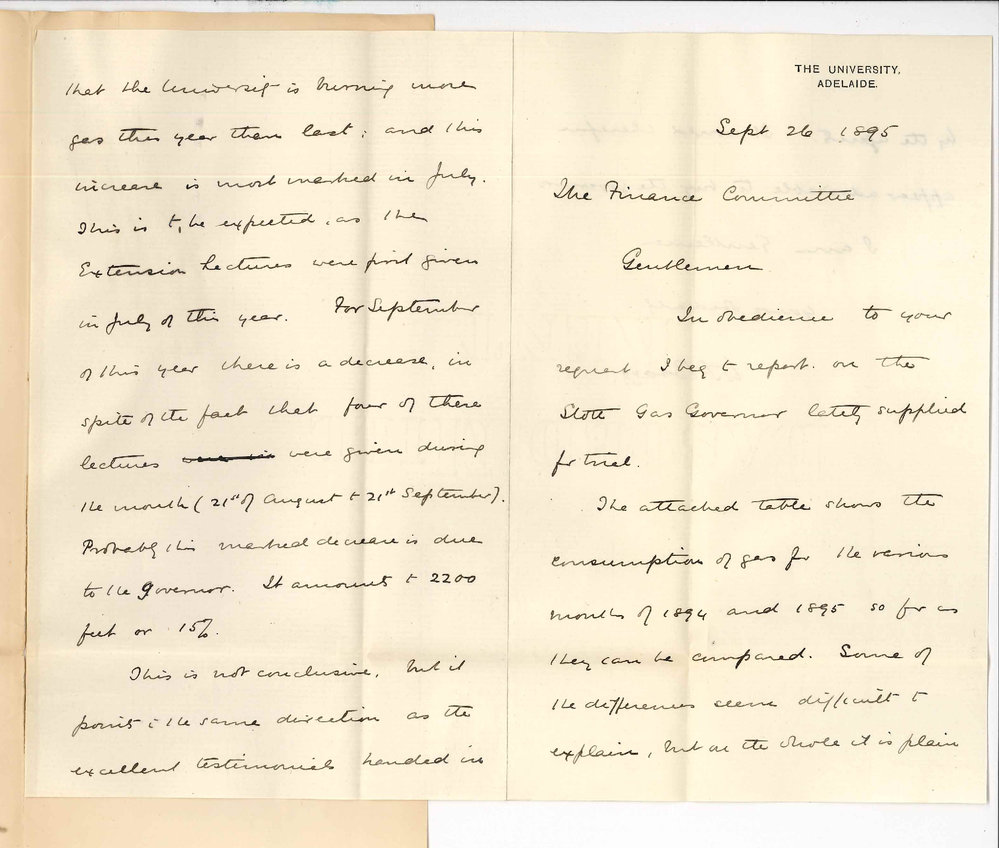 THE UNIVERSITY,
ADELAIDE.
Sept 26. 1895
The Finance Committee
Gentlemen
In obedience to your
request I beg to report on the
Stott Gas Governor lately supplied
for trial.
The attached table shows the
consumption of gas for the various
months of 1894 and 1895 so far as
they can be compared. Some of
the differences seem difficult to
explain, but on the whole it is plain
that the University is burning more
gas this year than last; and this
increase is most marked in July.
This is to be expected, as the
Extension Lectures were first given
in July of this year. For September
of this year there is a decrease, in
spite of the fact that four of these
lectures were given during
the month (21st of August to 21st September).
Probably this marked decrease is due
to the Governor. It amounts to 2200
feet or 15%.
This is not conclusive, but it
points to the same direction as the
excellent testimonials handed in